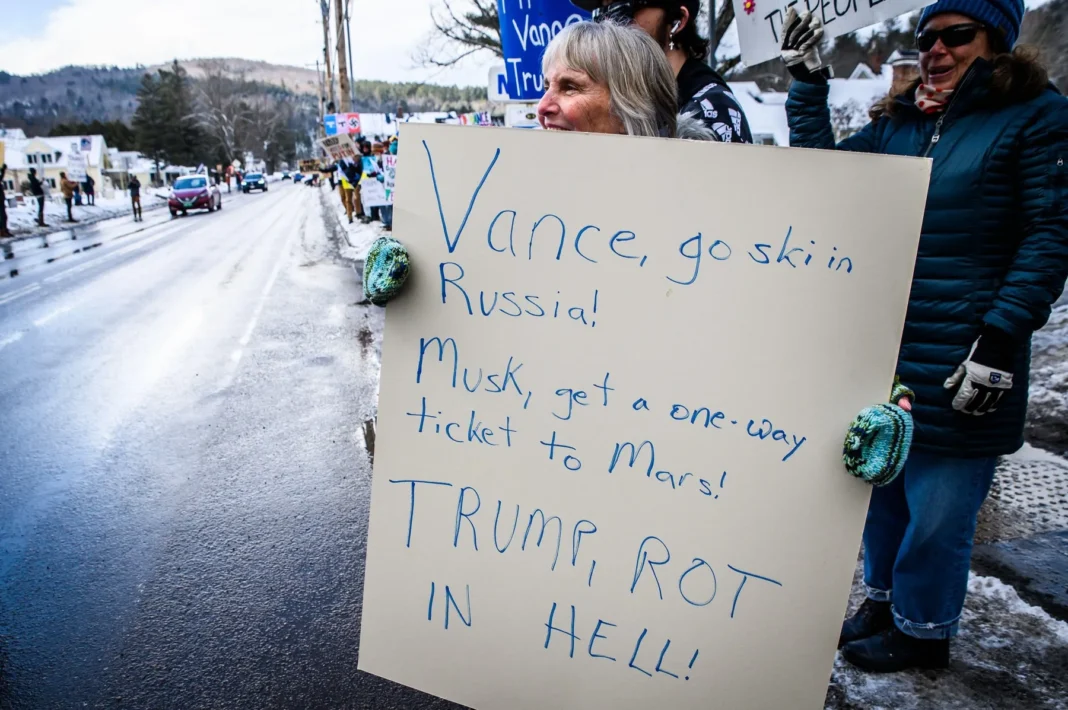 Vance
Tru
THE PEOPLE
Vance, go ski in
Russia!
Musk, get a one-way
ticket to Mars!
TRUMP, ROT
IN HELL!